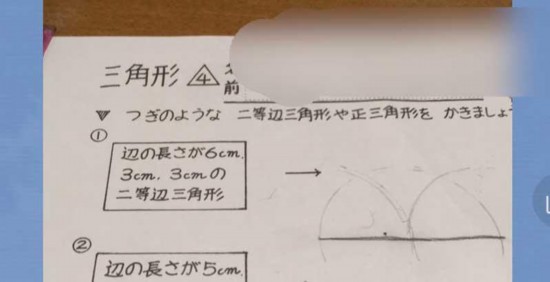 三角形 ④
前
▼ つぎのような 二等辺三角形や正三角形を かきましょ
①
辺の長さが6cm.
3cm. 3cmの
二等辺三角形
→
②
辺の長さが5cm.